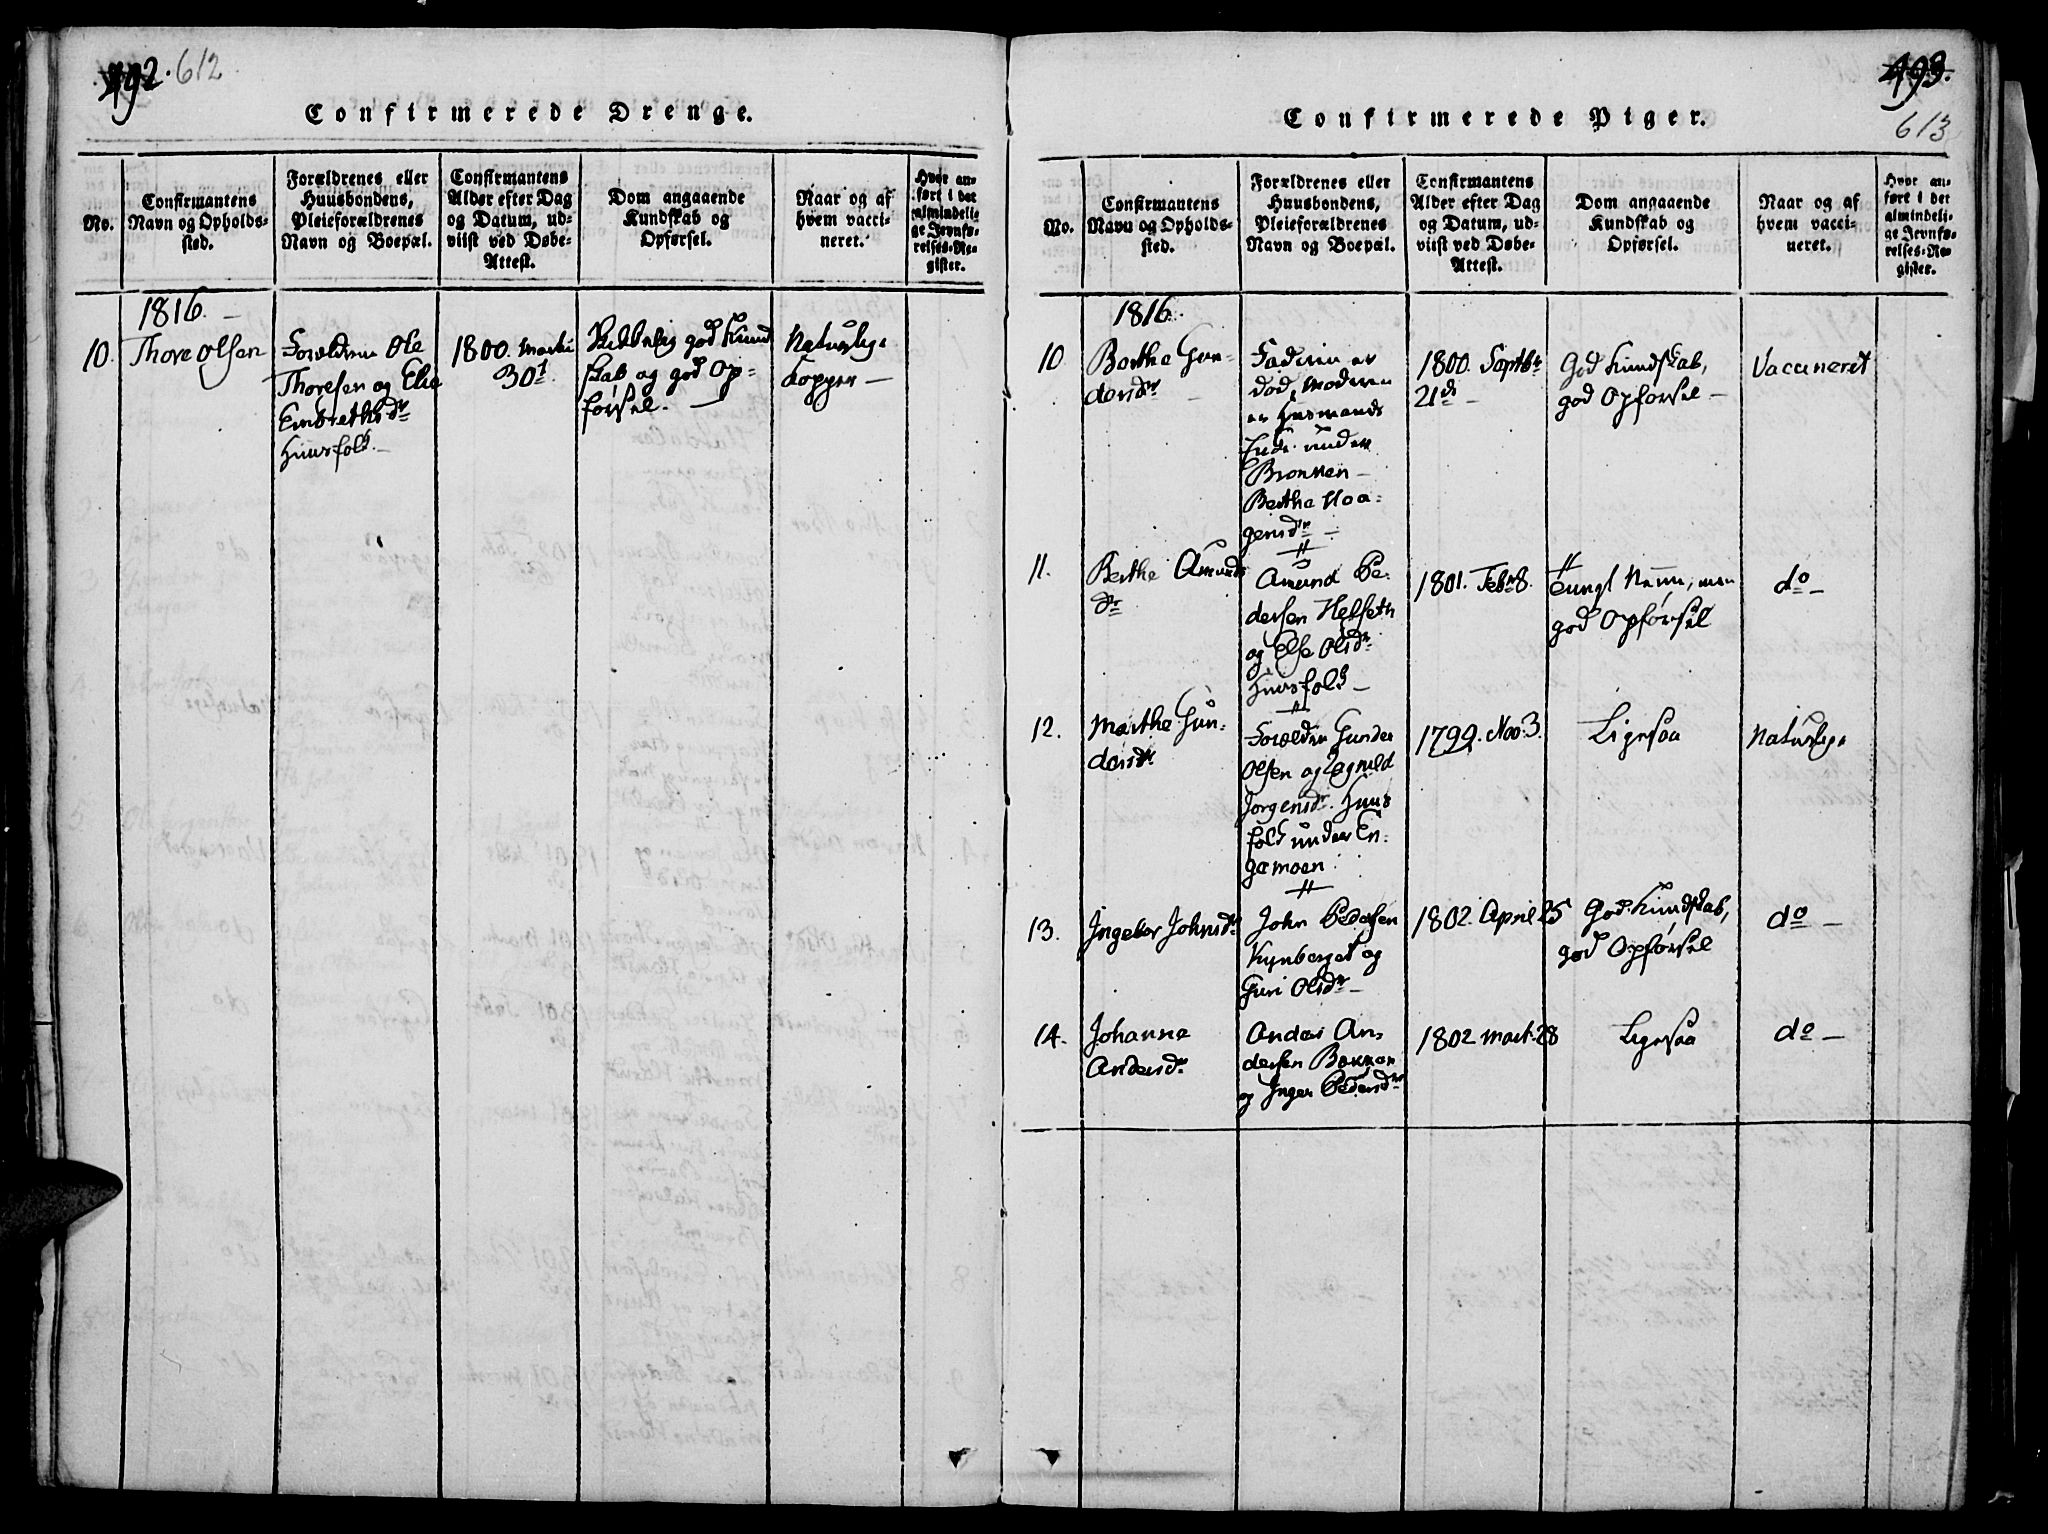 492. 612.
Confirmerede Drenge.
No.
Confirmantens
Navn og Opholds-
sted.
Forældrenes eller
Huusbondens,
Pleieforældrenes
Navn og Boepæl.
Confirmantens
Alder efter Dag
og Datum, ud-
viist ved Døbe-
Attest.
Dom angaaende
Kundskab og
Opførsel.
Naar og af
hvem vacci-
neret.
Hvor an-
ført i det
almindeli-
ge Jevnfø-
relses-Re-
gister.
1816. –
10.
Thore Olsen
Forældrene Ole
Thoresen og Elie
Embrethsdr
Huusfolk. –
1800. Martii
30t
god Kund
skab og god Op-
førsel. –
Naturlige
Kopper –
493.
613
Confirmerede Piger.
No.
Confirmantens
Navn og Opholds-
sted.
Forældrenes eller
Huusbondens,
Pleieforældrenes
Navn og Boepæl.
Confirmantens
Alder efter Dag
og Datum, ud-
viist ved Døbe-
Attest.
Dom angaaende
Kundskab og
Opførsel.
Naar og af
hvem vacci-
neret.
Hvor an-
ført i det
almindeli-
ge Jevnfø-
relses-Re-
gister.
1816.
10
Berthe Gun-
dersdr
Faderen er
død, Moderen
er Husmands
Enke under
Bronken –
Berthe Haa-
gensdr –
1800. Septbr
21de –
God Kundskab,
god Opførsel –
Vaccineret
11.
Berthe Amunds
dr
Amund Pe-
dersen Helseth
og Else Olsdr
Huusfolk –
1801. Febr 8.
Tungt Nemme, men
god Opførsel
do –
12.
Marthe Gun-
dersdr
Forældre Gunder
Olsen og Ragnild
Jørgensdr. Huus
folk under En-
gemoen
1799. Nov. 3.
Ligesaa
Naturlige
13.
Ingebor Johnsdr
John Pedersen
Kynberget og
Guri Olsdr –
1802. April 25
God Kundskab,
god Opførsel
do –
14.
Johanne
Andersdr
Anders An-
dersen
og Inger Pedersdr
1802 Mart. 28
Ligesaa
do –